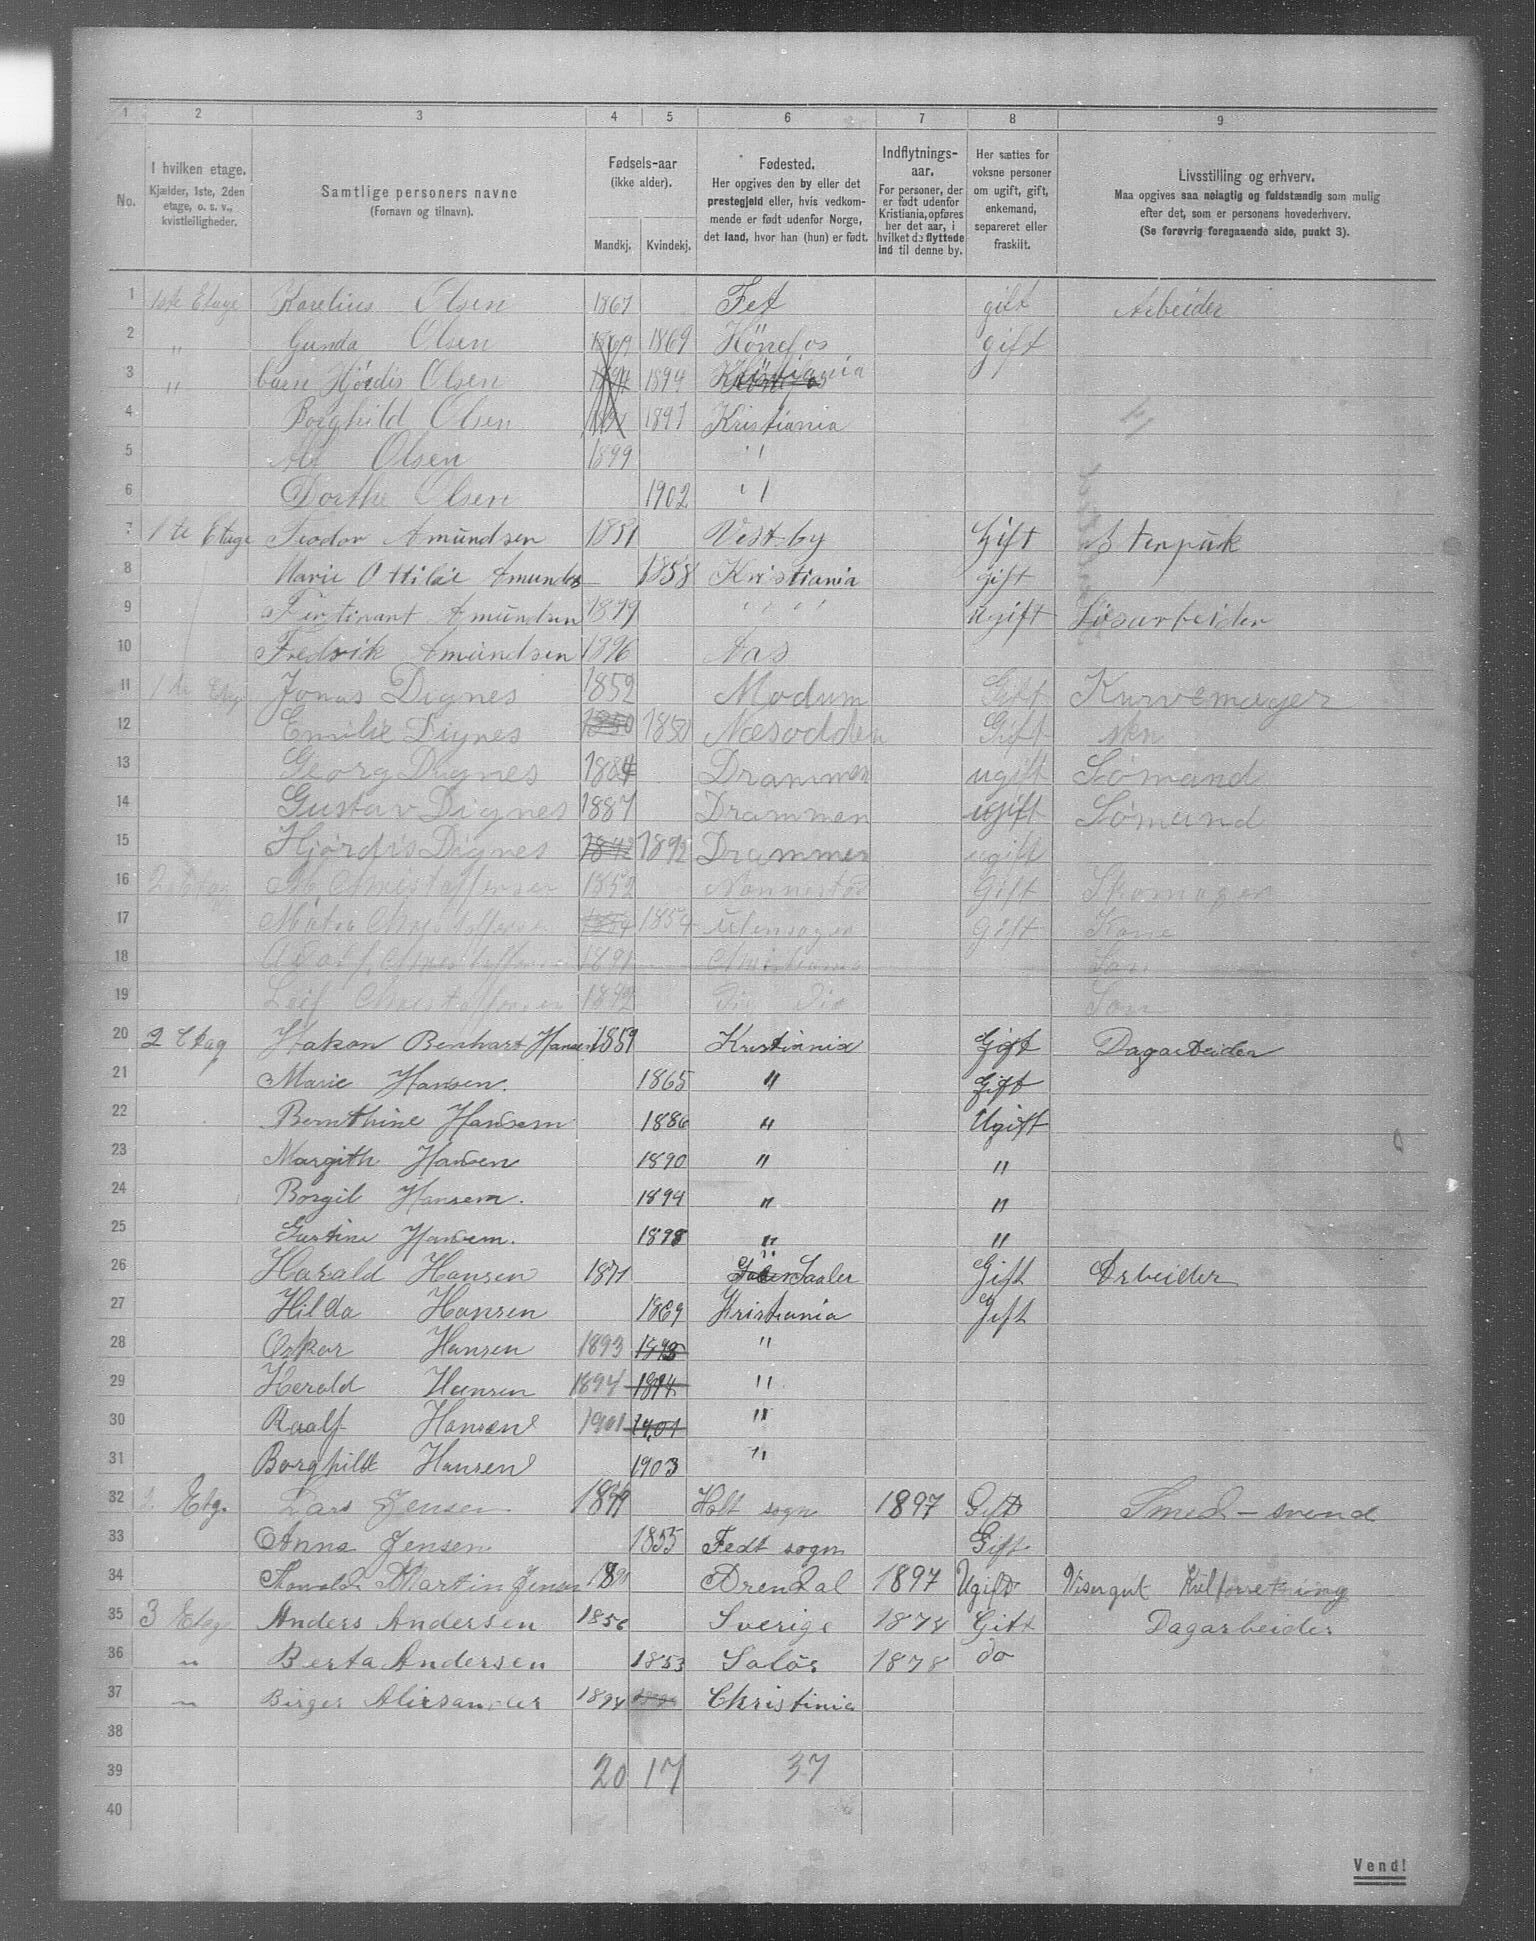 1 2 3 4 5 6 7 8 9
No.
I hvilken etage.
Kjælder, 1ste, 2den
etage, o. s. v.,
kvistleiligheder.
Samtlige personers navne
(Fornavn og tilnavn).
Fødsels-aar
(ikke alder).
Mandkj. Kvindekj.
Fødested.
Her opgives den by eller det
prestegjeld eller, hvis vedkom-
mende er født udenfor Norge,
det land, hvor han (hun) er født.
Indflytnings-
aar.
For personer, der
er født udenfor
Kristiania, opføres
her det aar, i
hvilket de flyttede
ind til denne by.
Her sættes for
voksne personer
om ugift, gift,
enkemand,
separeret eller
fraskilt.
Livsstilling og erhverv.
Maa opgives saa nøiagtig og fuldstændig som mulig
efter det, som er personens hovederhverv.
(Se forøvrig foregaaende side, punkt 3).
1 1ste Etage Karelius Olsen 1867 Fet gift Arbeider
2 " Gunda Olsen 1869 1869 Hönefos gift
3 " barn Hjördis Olsen 1894 1894 Kristiania
4 Borghild Olsen 1897 1897 Kristiania
5 Olsen 1899 "
6 Dorthe Olsen 1902 "
7 1te Etage Teodor Amundsen 1851 Vestby Gift
8 Marie Ottilie Amunds 1858 Kristiania gift
9 Fertinant Amundsen 1879 " " ugift Lösarbeider
10 Fredrik Amundsen 1896 Aas
11 1te Etage Jonas Dignes 1852 Modum Gift Kurvemager
12 Emilie Dignes 1850 1850 Næsodden Gift
13 Georg Dignes 1884 Drammen ugift Sømand
14 Gustav Dignes 1887 Drammen ugift Sømand
15 Hjørdis Dignes 1892 1892 Drammen ugift
16 2 Etag Christoffersen 1852 Nannestad Gift Skomager
17 Christoffersen 1854 1854 Ullensager Gift Kone
18 Adolf Christoffersen 1891 Christiania Søn
19 Leif Christoffersen 1892 Dio Dio Søn
20 2 Etag Hakon Benhart Hansen 1859 Kristiania Gift Dagarbeider
21 Marie Hansen. 1865 " Gift
22 Bernthine Hansem 1886 " Ugift
23 Margith Hansen 1890 " "
24 Borgil Hansem. 1894 " "
25 Gustine Hansem. 1898 " "
26 Harald Hansen 1871 Saaler Gift Arbeider
27 Hilda Hansen 1869 Kristiania Gift
28 Oskar Hansen 1893 1893 "
29 Herald Hansen 1894 1894 "
30 Raalf Hansen 1901 1901 "
31 Borghild Hansen 1903 "
32 Etg. Lars Jensen Holt sogn 1897 Gift Smed-svend
33 Anna Jensen 1855 Fedt sogn Gift
34 Martin Jensen Arendal 1897 Ugift Visergut
35 3 Etage Anders Andersen 1856 Sverige 1878 Gift Dagarbeider
36 " Berta Andersen 1853 Solör 1878 do
37 " Birger Alexsander 1894 Christinia
38
39 20 17 37
40
Vend!